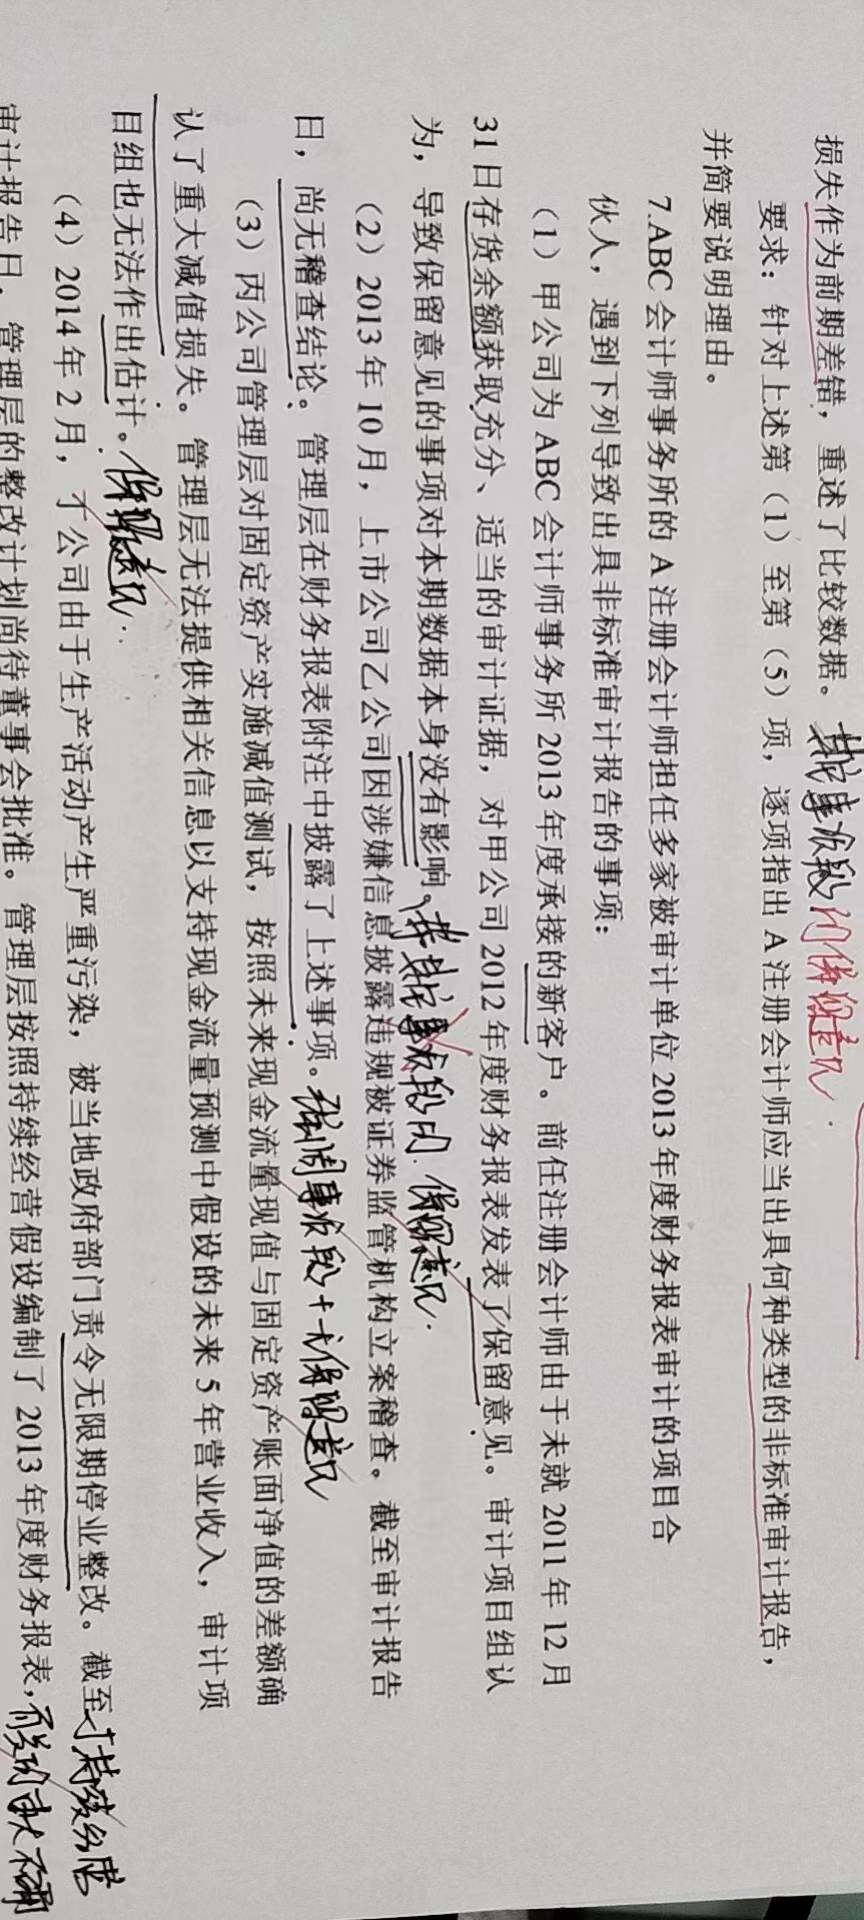 损失作为前期差错，重述了比较数据。其他事项段 的保留意见.
要求：针对上述第（1）至第（5）项，逐项指出 A 注册会计师应当出具何种类型的非标准审计报告，
并简要说明理由。
7.ABC 会计师事务所的 A 注册会计师担任多家被审计单位 2013 年度财务报表审计的项目合
伙人，遇到下列导致出具非标准审计报告的事项：
（1）甲公司为 ABC 会计师事务所 2013 年度承接的新客户。前任注册会计师由于未就 2011 年 12 月
31 日存货余额获取充分、适当的审计证据，对甲公司 2012 年度财务报表发表了保留意见。审计项目组认
为，导致保留意见的事项对本期数据本身没有影响。带其他事项段的 保留意见.
（2）2013 年 10 月，上市公司乙公司因涉嫌信息披露违规被证券监管机构立案稽查。截至审计报告
日，尚无稽查结论。管理层在财务报表附注中披露了上述事项。强调事项段+无保留意见
（3）丙公司管理层对固定资产实施减值测试，按照未来现金流量现值与固定资产账面净值的差额确
认了重大减值损失。管理层无法提供相关信息以支持现金流量预测中假设的未来 5 年营业收入，审计项
目组也无法作出估计。保留意见.
（4）2014 年 2 月，丁公司由于生产活动产生严重污染，被当地政府部门责令无限期停业整改。截至
审计报告日，管理层的整改计划尚待董事会批准。管理层按照持续经营假设编制了 2013 年度财务报表，